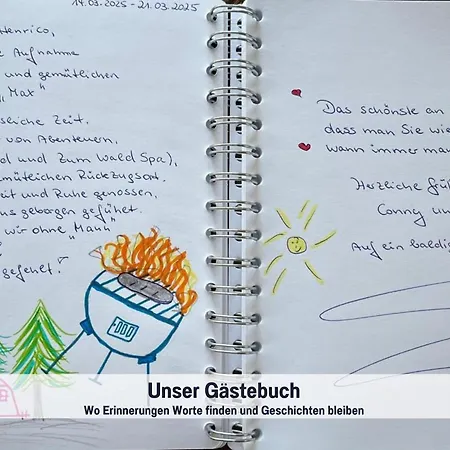 14.03.2025 - 21.03.2025
Henrico,
Aufnahme
und gemütlichen
„Max"
Zeit.
von Abenteuern,
und zum Wald Spa),
gemütlichen Rückzugsort.
und Ruhe genossen,
uns geborgen gefühlt.
wir ohne „Mann"
Das schönste an
dass man Sie wie
wann immer man
Herzliche Grüß
Conny un
Auf ein baldig
Unser Gästebuch
Wo Erinnerungen Worte finden und Geschichten bleiben